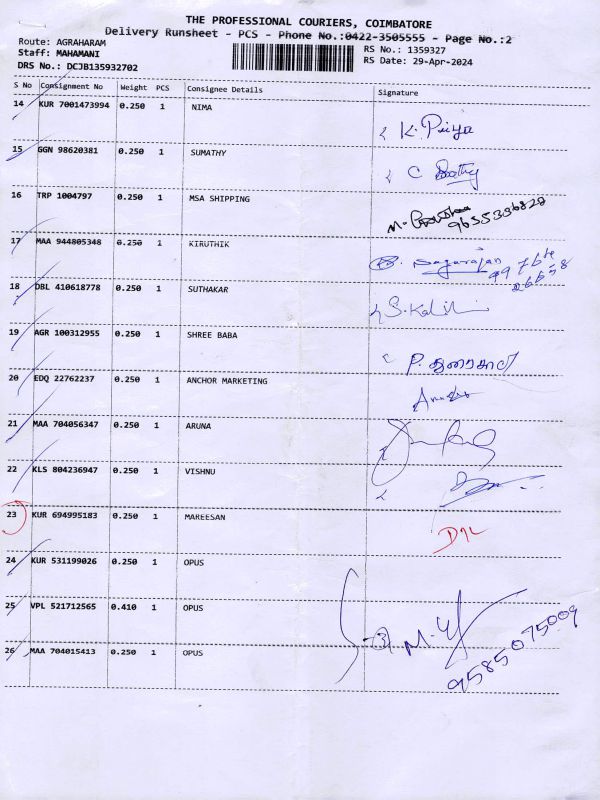 THE PROFESSIONAL COURIERS, COIMBATORE
Delivery Runsheet - PCS - Phone No.:0422-3505555 - Page No.:2
Route: AGRAHARAM
Staff: MAHAMANI
DRS No.: DCJB135932702
RS No.: 1359327
RS Date: 29-Apr-2024
S No Consignment No Weight PCS Consignee Details Signature
14 KUR 7001473994 0.250 1 NIMA K. Priya
15 GGN 98620381 0.250 1 SUMATHY
16 TRP 1004797 0.250 1 MSA SHIPPING
17 MAA 944805348 0.250 1 KIRUTHIK
18 DBL 410618778 0.250 1 SUTHAKAR
19 AGR 100312955 0.250 1 SHREE BABA
20 EDQ 22762237 0.250 1 ANCHOR MARKETING
21 MAA 704056347 0.250 1 ARUNA
22 KLS 804236947 0.250 1 VISHNU
23 KUR 694995183 0.250 1 MAREESAN
24 KUR 531199026 0.250 1 OPUS
25 VPL 521712565 0.410 1 OPUS
26 MAA 704015413 0.250 1 OPUS
9585075009